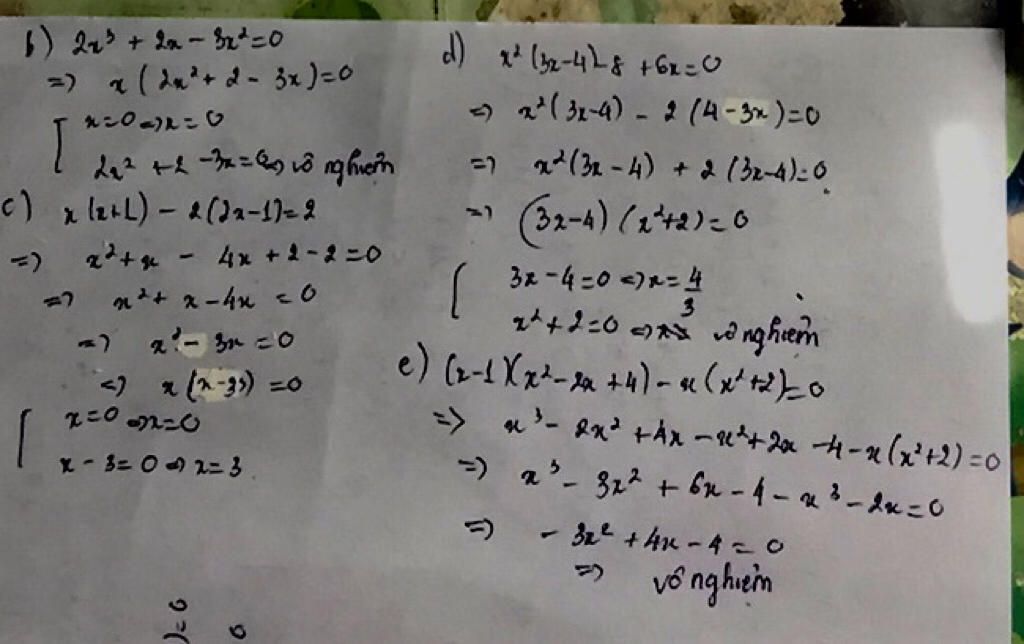 b) 2x³ + 2x - 3x² = 0
=> x (2x² + 2 - 3x) = 0
[ x=0 => x = 0
2x² + 2 - 3x = 0 => vô nghiệm
c) x(x+1) - 2(2x-1) = 2
=> x² + x - 4x + 2 - 2 = 0
=> x² + x - 4x = 0
=> x² - 3x = 0
<=> x(x-3) = 0
[ x=0 => x=0
x - 3 = 0 => x = 3
d) x² (3x-4) - 8 + 6x = 0
=> x² (3x-4) - 2 (4-3x) = 0
=> x² (3x-4) + 2 (3x-4) = 0
=> (3x-4) (x²+2) = 0
[ 3x-4 = 0 <=> x = 4/3
x² + 2 = 0 => vô nghiệm
e) (x-1)(x² - 2x + 4) - x (x²+2) = 0
=> x³ - 2x² + 4x - x² + 2x - 4 - x(x²+2) = 0
=> x³ - 3x² + 6x - 4 - x³ - 2x = 0
=> - 3x² + 4x - 4 = 0
=> vô nghiệm
) = 0 0